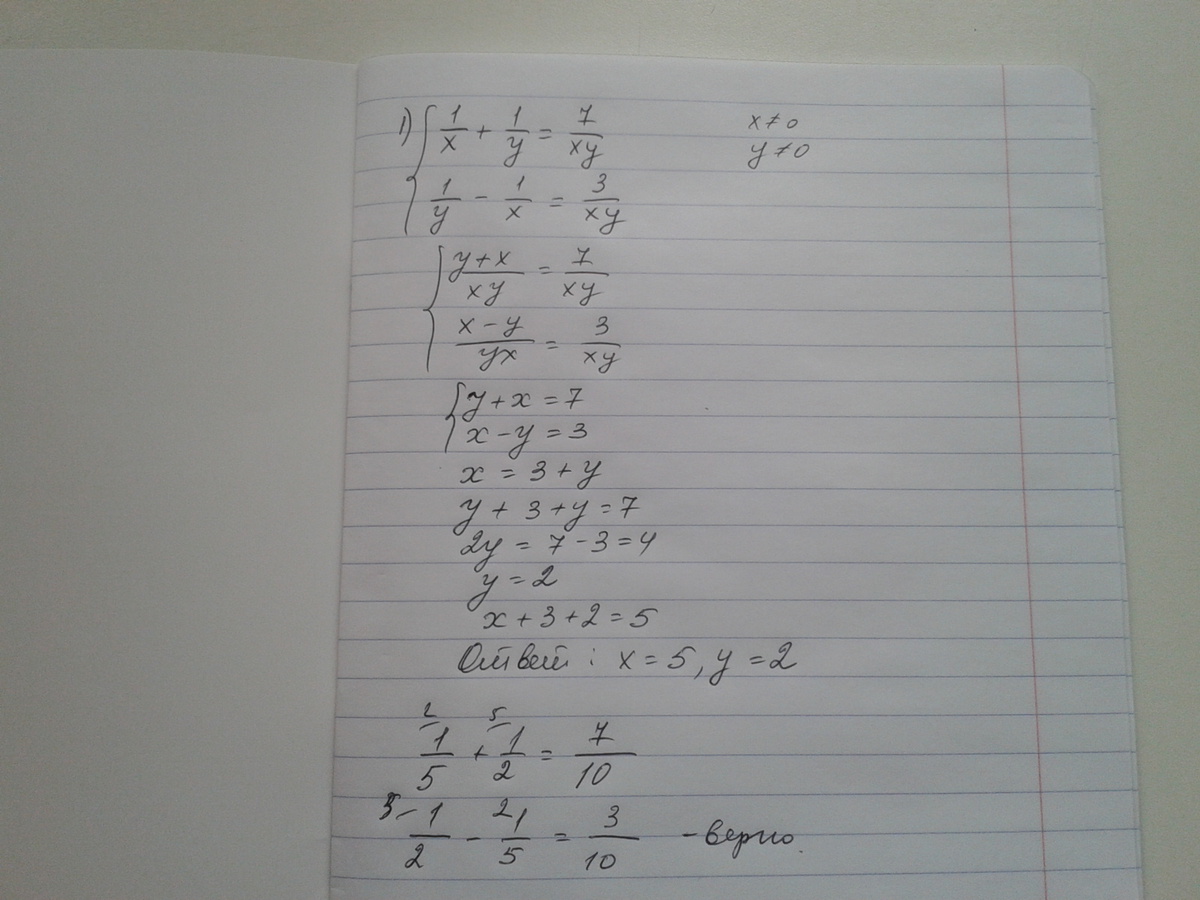 1) { 1/x + 1/y = 7/xy    x ≠ 0
y ≠ 0
1/y - 1/x = 3/xy
{ y+x/xy = 7/xy
x-y/yx = 3/xy
{ y+x=7
x-y=3
x = 3+y
y+3+y=7
2y = 7-3=4
y=2
x+3+2=5
Ответ: x=5, y=2
2 5
1/5 + 1/2 = 7/10
5 1/2 - 2 1/5 = 3/10 - верно.